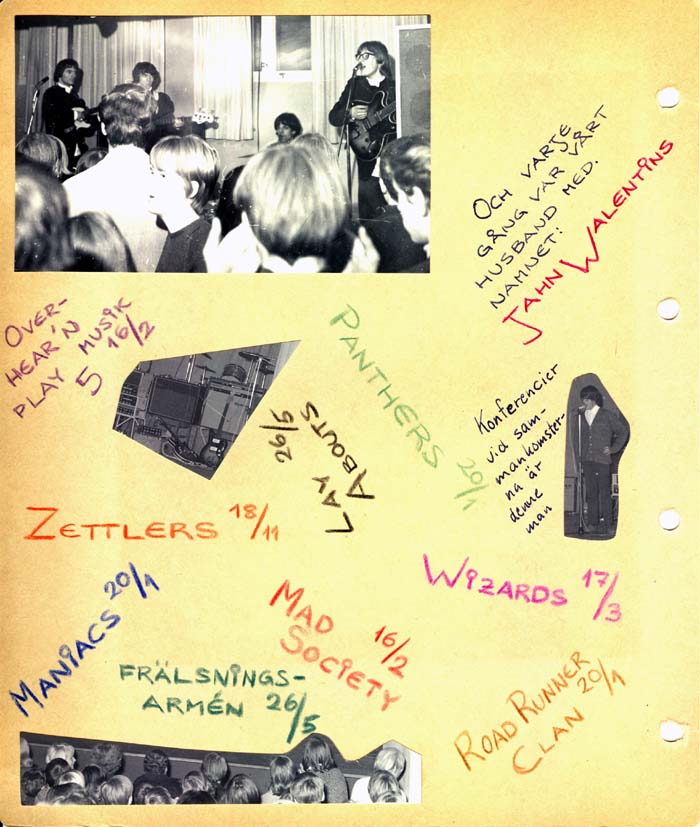 OCH VARJE
GÅNG VAR VÅRT
HUSBAND MED.
NAMNET:
JAHN WALENTINS
OVER-
HEAR'N
PLAY MUSIK
5 16/2
PANTHERS 20/1
LAY
ABOUTS
26/5
Konferencier
vid sam-
mankomster-
na är
denne
man
ZETTLERS 18/11
WIZARDS 17/3
MANIACS 20/1
MAD
SOCIETY 16/2
FRÄLSNINGS-
ARMÉN 26/5
ROAD RUNNER
CLAN 20/1